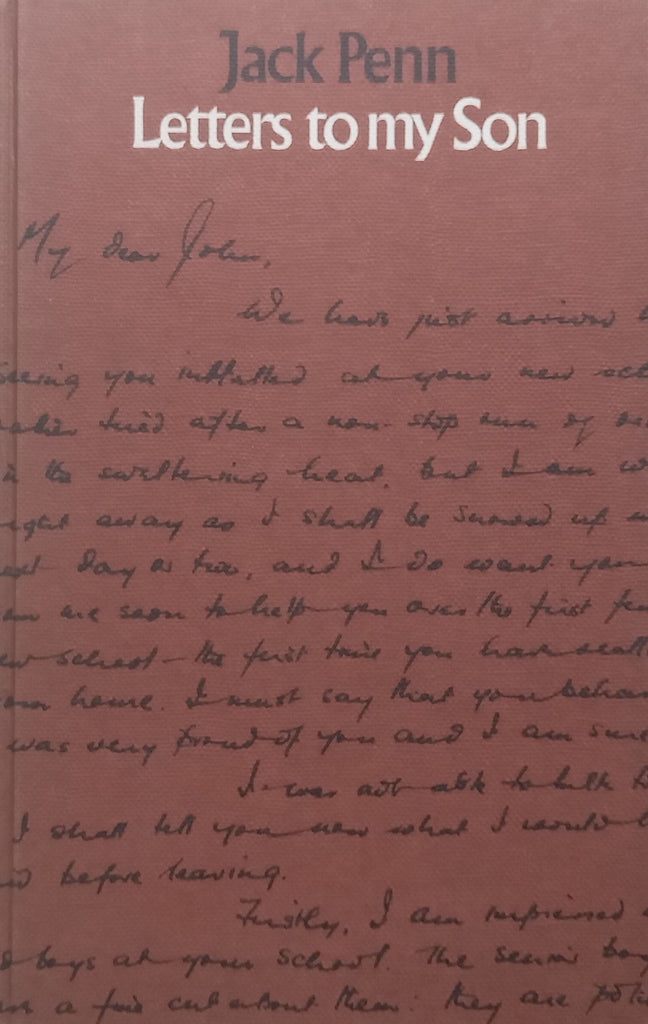 Jack Penn
Letters to my Son
My dear John,
We have just arrived
seeing you installed at your new
tired after a non-stop run of
in the sweltering heat, but I am
right away as I shall be snowed up
day or two, and I do want you
me soon to help you over the first few
new school – the first time you have
home. I must say that your
was very proud of you and I am sure
I was not able to talk
I shall tell you now what I would
before leaving.
Firstly, I am impressed
boys at your school. The senior boys
a fine cut about them: they are